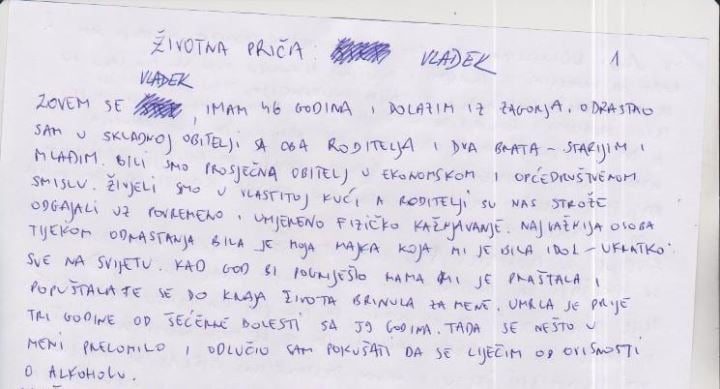 ŽIVOTNA PRIČA: VLADEK 1
VLADEK
ZOVEM SE , IMAM 46 GODINA I DOLAZIM IZ ZAGORJA. ODRASTAO
SAM U SKLADNOJ OBITELJI SA OBA RODITELJA I DVA BRATA - STARIJIM I
MLAĐIM. BILI SMO PROSJEČNA OBITELJ U EKONOMSKOM I OPĆEDRUŠTVENOM
SMISLU. ŽIVJELI SMO U VLASTITOJ KUĆI A RODITELJI SU NAS STROŽE
ODGAJALI UZ POVREMENO I UMJERENO FIZIČKO KAŽNJAVANJE. NAJVAŽNIJA OSOBA
TIJEKOM ODRASTANJA BILA JE MOJA MAJKA KOJA MI JE BILA IDOL - UKRATKO
SVE NA SVIJETU. KAD GOD BI POGRIJEŠIO MAMA MI JE PRAŠTALA I
POPUŠTALA TE SE DO KRAJA ŽIVOTA BRINULA ZA MENE. UMRLA JE PRIJE
TRI GODINE OD ŠEĆERNE BOLESTI SA GODINA. TADA SE NEŠTO U
MENI PRELOMILO I ODLUČIO SAM POKUŠATI DA SE LIJEČIM OD OVISNOSTI
O ALKOHOLU.